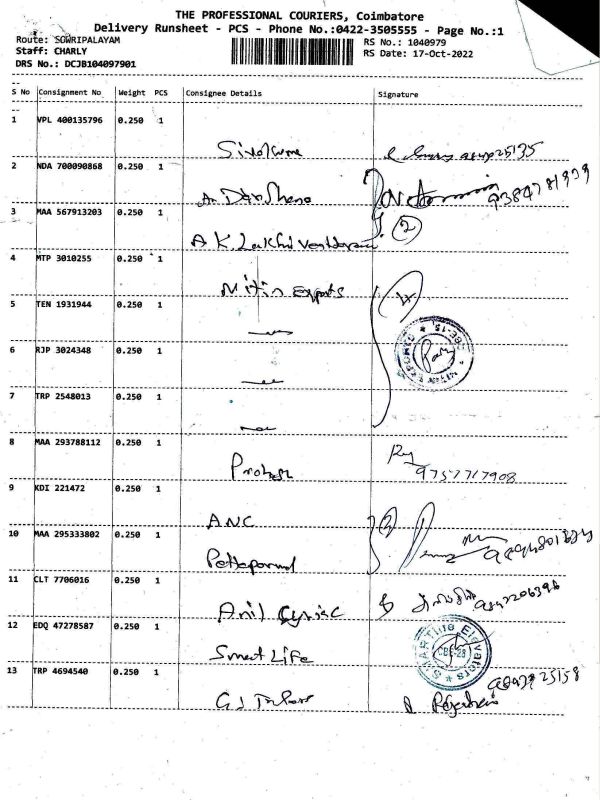 THE PROFESSIONAL COURIERS, Coimbatore
Delivery Runsheet - PCS - Phone No.:0422-3505555 - Page No.:1
Route: SOWRIPALAYAM
Staff: CHARLY
DRS No.: DCJB104097901
RS No.: 1040979
RS Date: 17-Oct-2022
S No Consignment No Weight PCS Consignee Details Signature
1 VPL 400135796 0.250 1
2 NDA 700090868 0.250 1
9384781939
3 MAA 567913203 0.250 1
A K Lakhi 2
4 MTP 3010255 0.250 1
Nitin Exports 4
5 TEN 1931944 0.250 1
6 RJP 3024348 0.250 1
7 TRP 2548013 0.250 1
8 MAA 293788112 0.250 1
Prakash 9757717908
9 KDI 221472 0.250 1
ANC 2
10 MAA 295333802 0.250 1
11 CLT 7706016 0.250 1
Anil Cyriac
12 EDQ 47278587 0.250 1
Smart Life
SMARTline Elevators CBE-28
13 TRP 4694540 0.250 1
G J